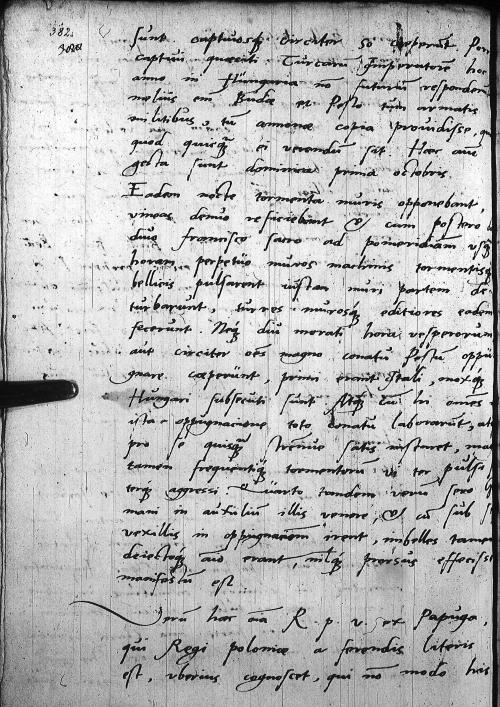 382
sunt captivosq́ circiter 50 coeperunt. Por
captivi quaesiti Turcarū Imperatorē hoc
anno in Hungaria nō futurū respondent
melius em Budā et Pestū tum armatis
militibus, tū annonae copia providisse, qu
quod quisq́ ei verendū sit. Haec autē
gesta sunt dominica prima octobris.
Eadem nocte tormenta muris opponebant,
vineas denuo reficiebant & cum postero
divo francisco sacro ad pomeridiam usq́
horam perpetuo muros machinis tormentisq́
bellicis pulsarent iustam muri partem de
turbarunt, turres murosq́ editiores eadem
fecerunt Neq́ diu morati hora vesperorum
aut circiter oēs magno conatu Pestū oppu
gnare coeperunt, primi erant Itali, moxq́
Hungari subsecuti sunt Atq́ cū hi omnes
ista oppugnatione toto conatu laborarūt, at
pro se quisq́ strenue satis instaret,
tamen frequentiq́ tormentorū vi ter pulsi
terq́ aggressi. Quarto tandem verū sero
mani in auxiliū illis venere, & cū sub
vexillis in oppugnationē irent, imbelles tamen
deiectoq́ aīo erant, nilq́ prorsus effecisse
manifestū est.
Verū haec oīa R. p. v. ex Papuga,
qui Regi poloniae a ferendis literis
est, uberius cognoscet, qui nō modo his